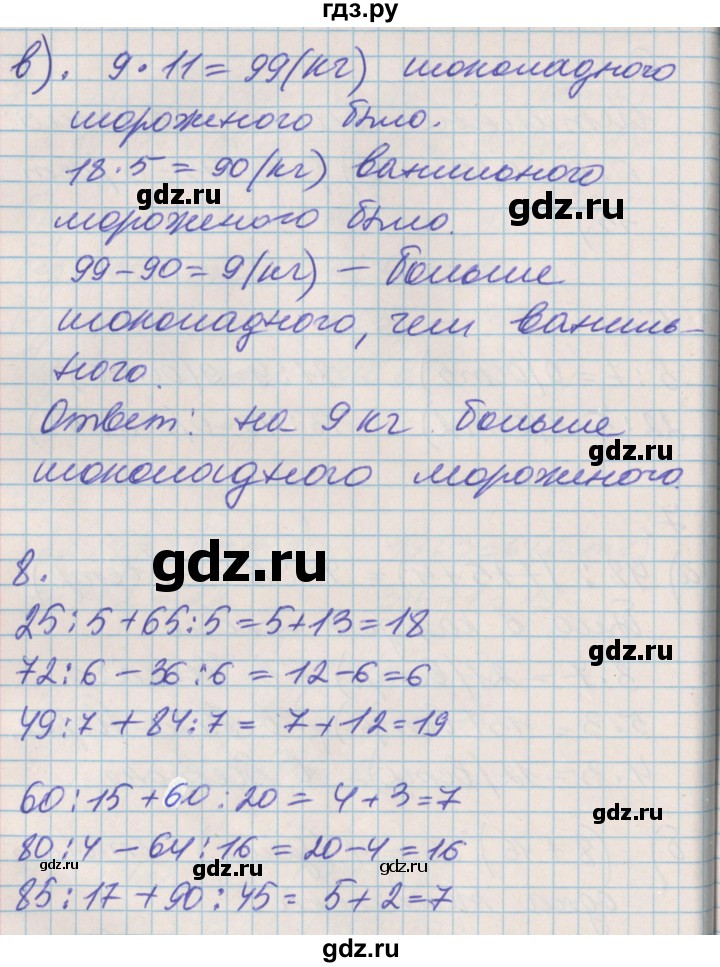 гдз.ру
в). 9·11=99(кг) шоколадного
мороженого было.
18·5=90(кг) ванильного
gdz.ru
gdz.ru
мороженого было.
99-90=9(кг) - больше
шоколадного, чем ваниль-
ного.
Ответ: на 9 кг больше
gdz.ru
шоколадного мороженого.
gdz.ru
8.
25:5+65:5=5+13=18
gdz.ru
72:6-36:6=12-6=6
49:7+84:7=7+12=19
60:15+60:20=4+3=7
gdz.ru
80:4-64:16=20-4=16
gdz.ru
gdz.ru
85:17+90:45=5+2=7
gdz.ru